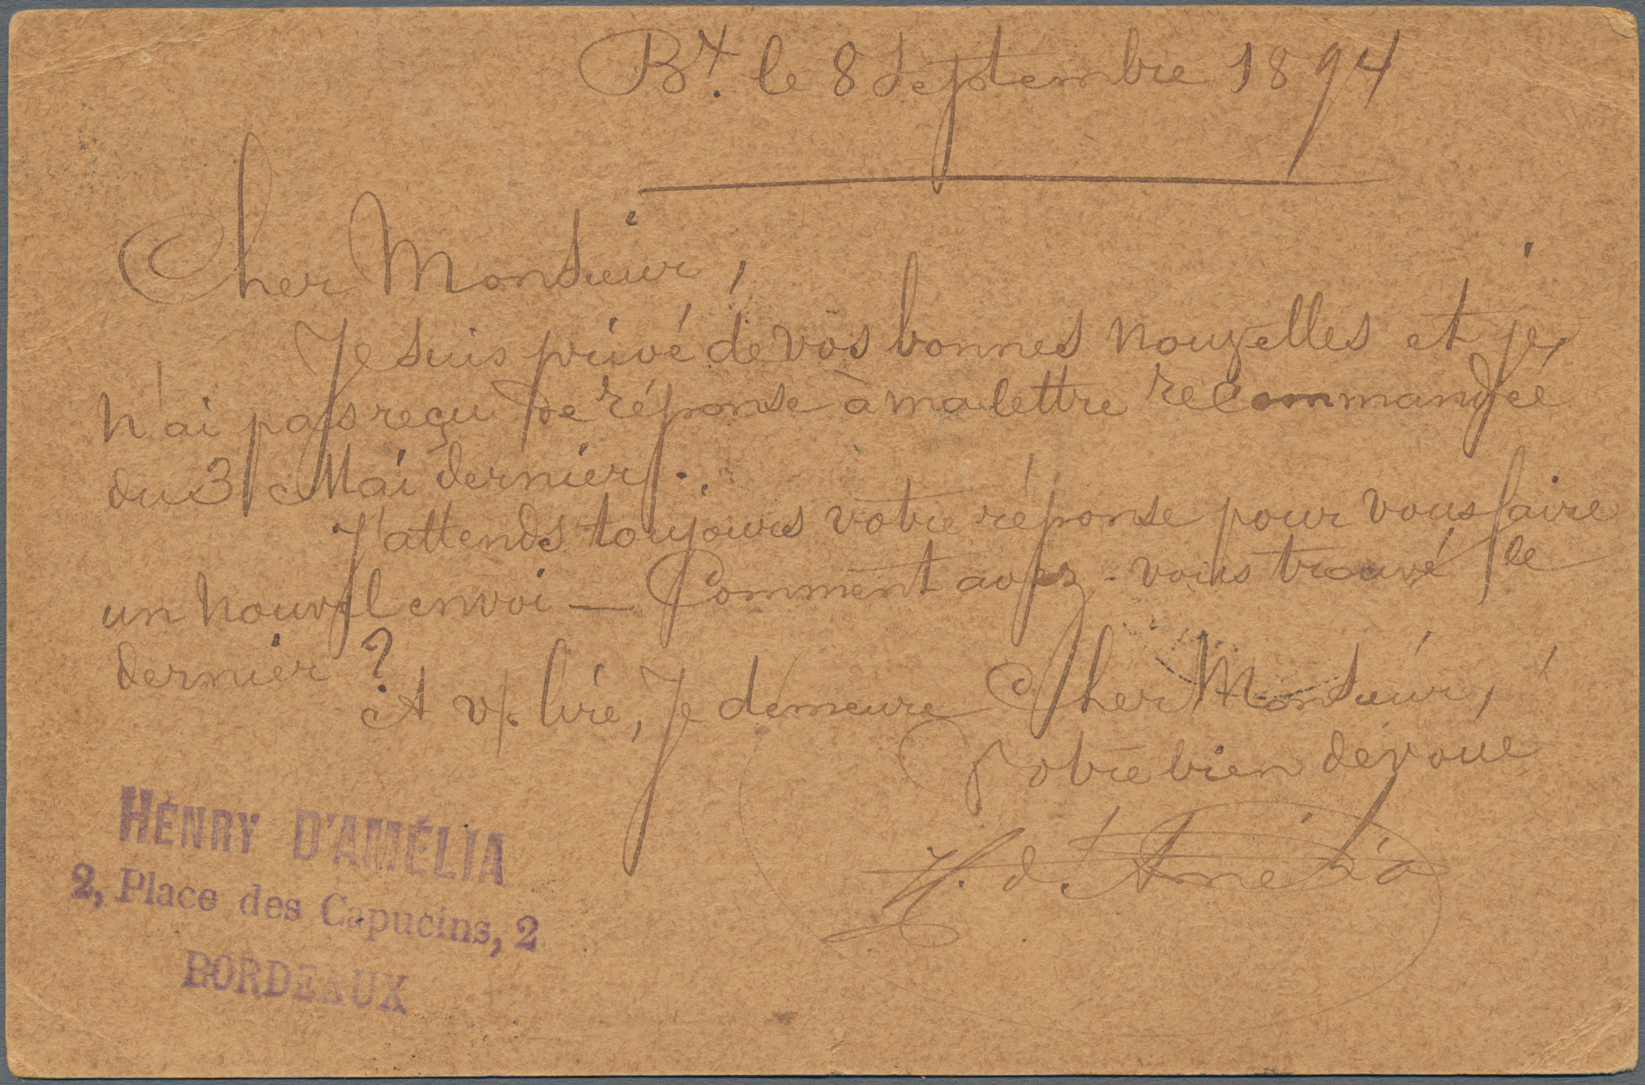 Bx. le 8 Septembre 1894
Cher Monsieur,
Je suis privé de vos bonnes nouvelles et je
n'ai pas reçu de réponse à ma lettre recommandée
du 31 Mai dernier.
J'attends toujours votre réponse pour vous faire
un nouvel envoi — Comment avez-vous trouvé le
dernier?
A v/. lire, Je demeure Cher Monsieur,
Votre bien dévoué
H. d'Amélia
HENRY D'AMÉLIA
2, Place des Capucins, 2
BORDEAUX